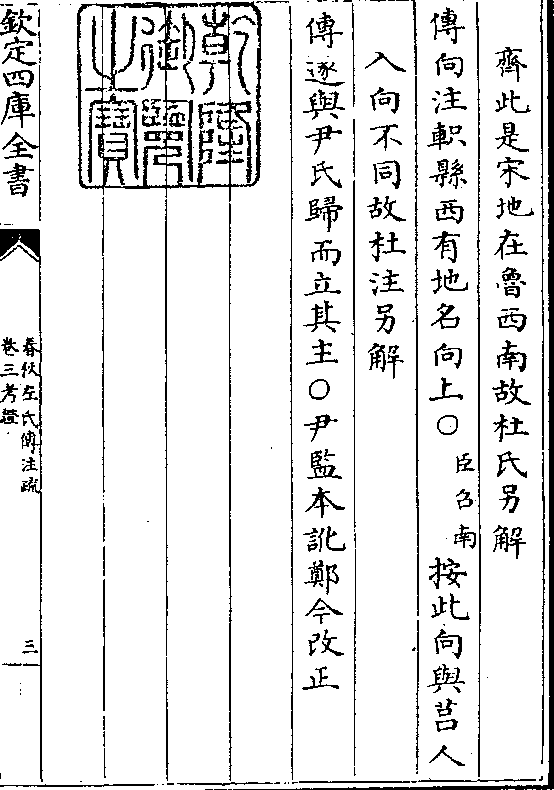 齊此是宋地在魯西南故杜氏另解
傳向注軹縣西有地名向上○臣召南按此向與莒人
入向不同故杜注另解
傳遂與尹氏歸而立其主○尹監本訛鄭今改正
乾隆御覽之寶
欽定四庫全書
春秋左氏傳注疏
卷三考證
三